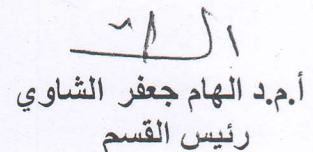 أ.م.د الهام جعفر الشاوي
رئيس القسم